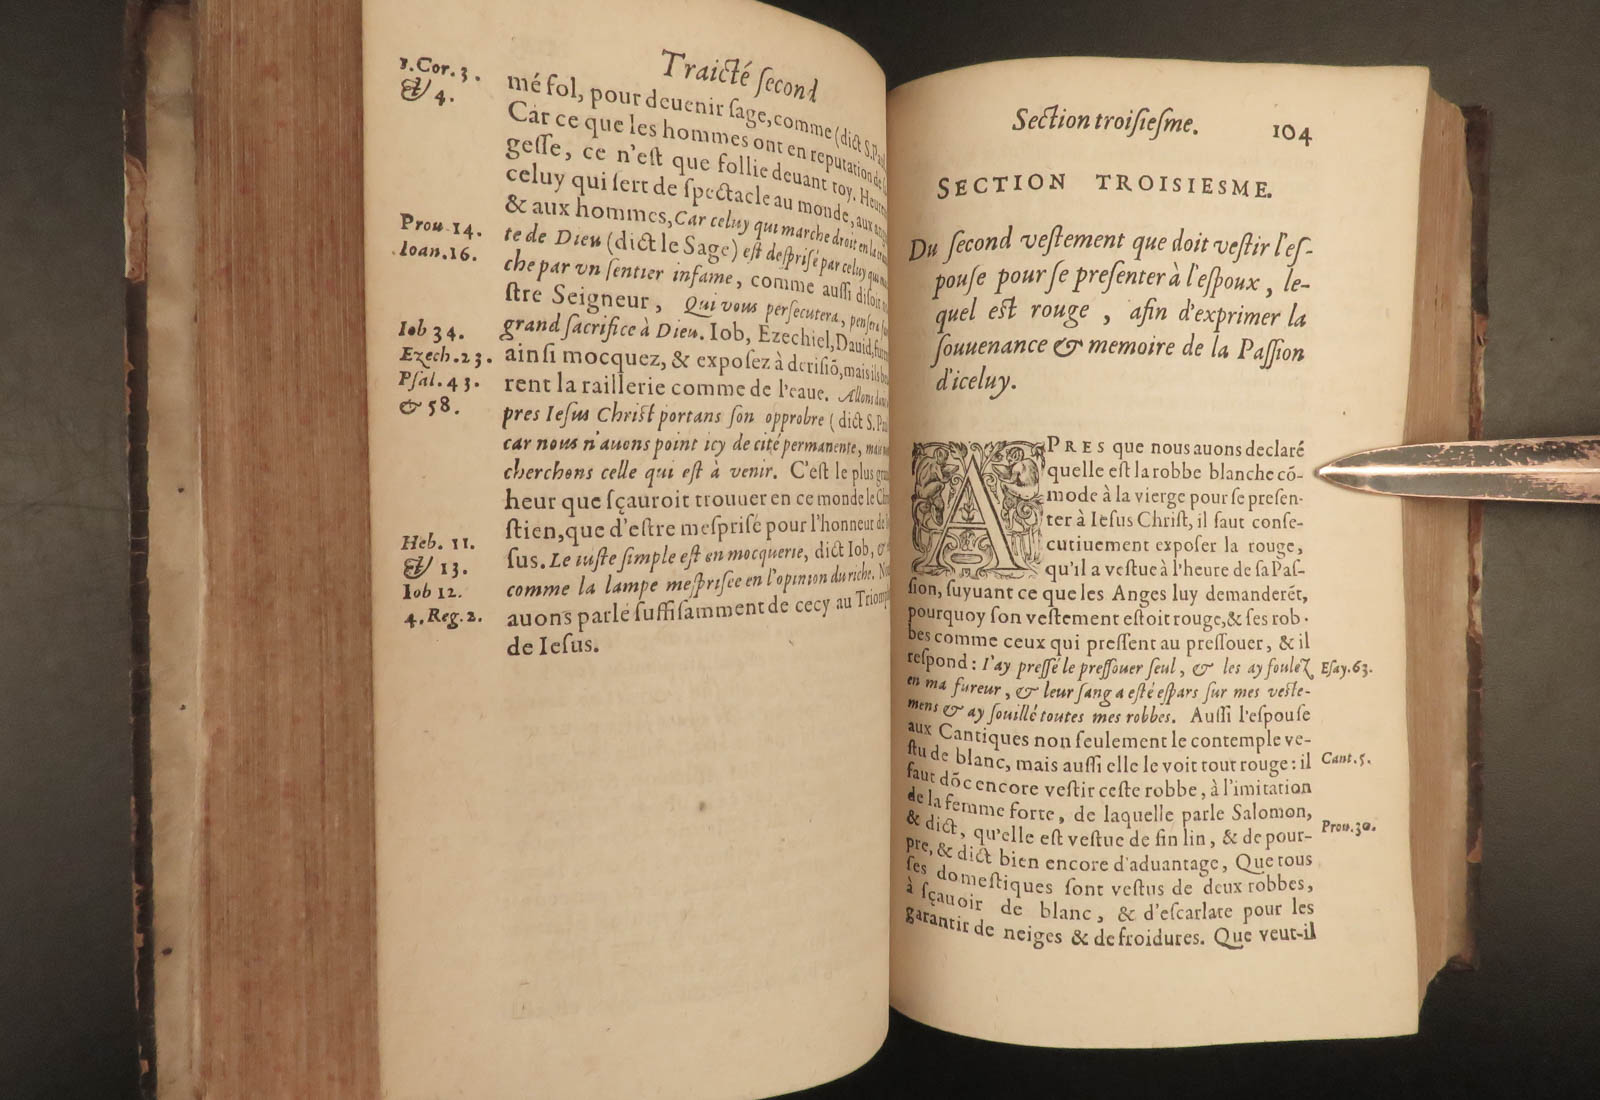 Traicté ſecond
1.Cor. 3.
& 4.
mé fol, pour deuenir ſage, comme (dict S. Paul
Car ce que les hommes ont en reputation de
geſſe, ce n'eſt que follie deuant toy. Heureux
celuy qui ſert de ſpectacle au monde, aux
& aux hommes, Car celuy qui marche droit en la
Prou. 14.
te de Dieu (dict le Sage) eſt deſpriſé par celuy qui
Ioan. 16.
che par vn ſentier infame, comme auſſi diſoit
ſtre Seigneur, Qui vous perſecutera, penſera
Iob 34.
grand ſacrifice à Dieu. Iob, Ezechiel, Dauid,
Ezech. 23.
ainſi mocquez, & expoſez à deriſiō, mais ils
Pſal. 43.
rent la raillerie comme de l'eaue. Allons
& 58.
pres Ieſus Chriſt portans ſon opprobre (dict S. Paul
car nous n'auons point icy de cité permanente, mais
cherchons celle qui eſt à venir. C'eſt le plus
heur que ſçauroit trouuer en ce monde le
ſtien, que d'eſtre meſpriſé pour l'honneur de
Heb. 11.
& 13.
ſus. Le iuſte ſimple eſt en mocquerie, dict Iob, &
Iob 12.
comme la lampe meſpriſee en l'opinion du riche.
4. Reg. 2.
auons parlé ſuffiſamment de cecy au
de Ieſus.
Section troiſieſme. 104
SECTION TROISIESME.
Du ſecond veſtement que doit veſtir l'eſ-
pouſe pour ſe preſenter à l'eſpoux, le-
quel eſt rouge, afin d'exprimer la
ſouuenance & memoire de la Paſſion
d'iceluy.
APRES que nous auons declaré
quelle eſt la robbe blanche cō-
mode à la vierge pour ſe preſen-
ter à Ieſus Chriſt, il faut conſe-
cutiuement expoſer la rouge,
qu'il a veſtue à l'heure de ſa Paſ-
ſion, ſuyuant ce que les Anges luy demanderēt,
pourquoy ſon veſtement eſtoit rouge, & ſes rob-
bes comme ceux qui preſſent au preſſouer, & il
reſpond: I'ay preſſé le preſſouer ſeul, & les ay foulez
Eſay. 63.
en ma fureur, & leur ſang a eſté eſpars ſur mes veſte-
mens & ay ſouillé toutes mes robbes. Auſſi l'eſpouſe
aux Cantiques non ſeulement le contemple ve-
ſtu de blanc, mais auſſi elle le voit tout rouge: il
Cant. 5.
faut dōc encore veſtir ceſte robbe, à l'imitation
de la femme forte, de laquelle parle Salomon,
Prou. 30.
& dict, qu'elle eſt veſtue de fin lin, & de pour-
pre, & dict bien encore d'aduantage, Que tous
ſes domeſtiques ſont veſtus de deux robbes,
à ſçauoir de blanc, & d'eſcarlate pour les
garantir de neiges & de froidures. Que veut-il